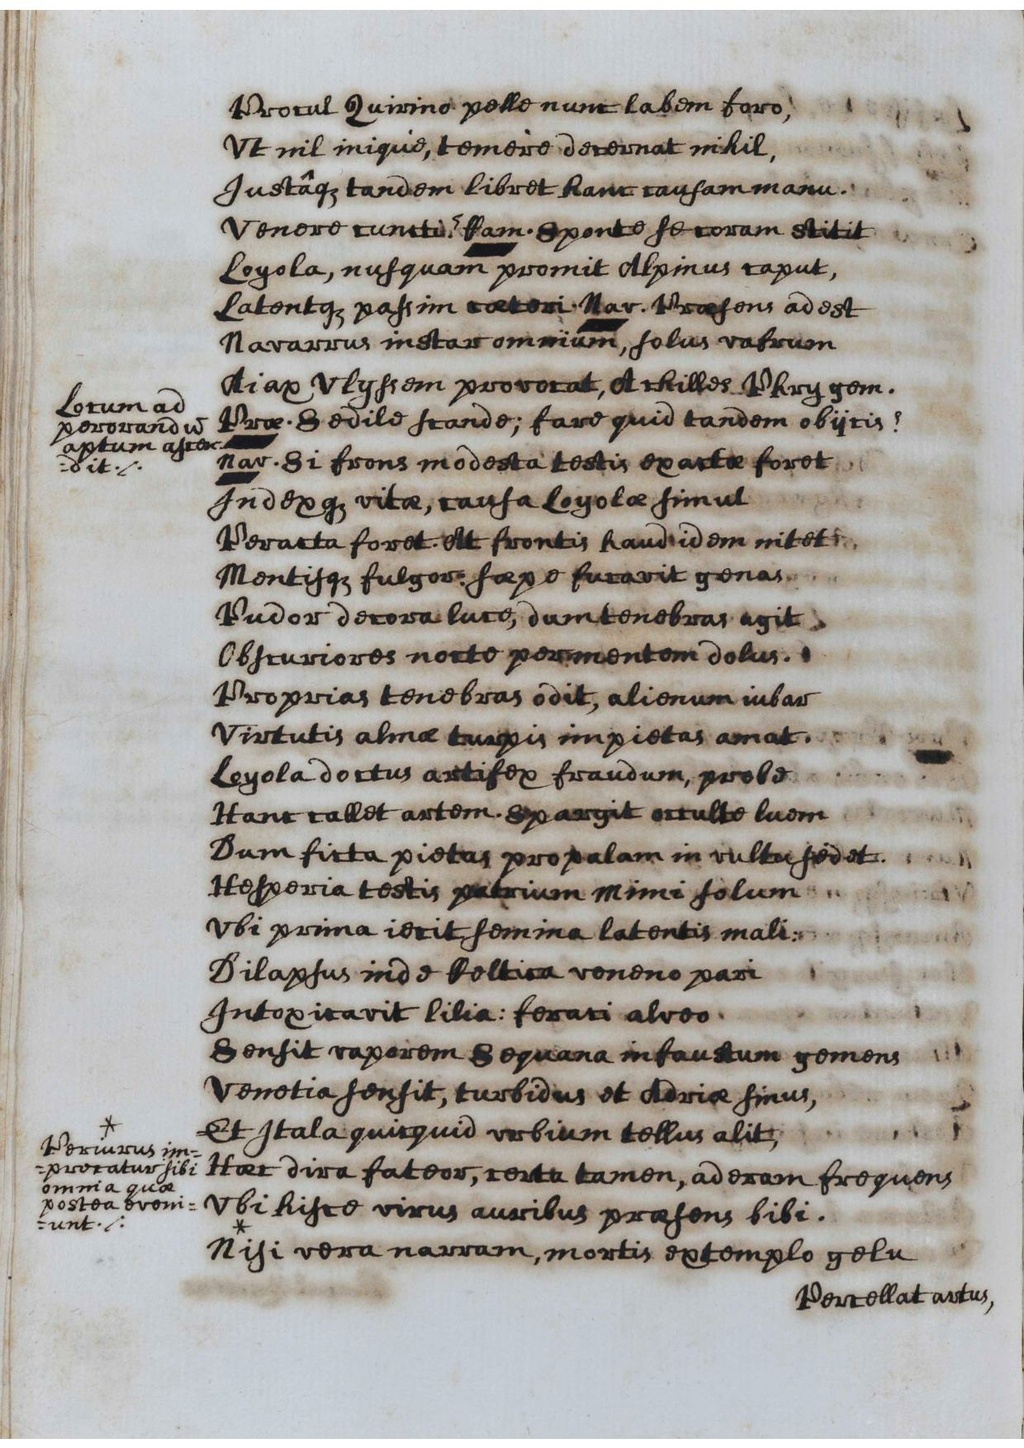 Procul Quirino pelle nunc labem foro,
Vt nil inique, temerè decernat nihil,
Justâq; tandem libret hanc causam manu.
Venere cuncti? Fam. Sponte se coram stitit
Loyola, nusquam promit Alpinus caput,
Latentq; passim cæteri. Nav. Præsens adest
Navarrus instar omnium, solus vafrum
Aiax Vlyssem provocat, Achilles Phrygem.
Locum ad
perorandū
aptum ascen
=dit ·/.
Præ. Sedile scande; fare quid tandem obijcis?
Nav. Si frons modesta testis exactæ foret
Indexq; vitæ, causa Loyolæ simul
Peracta foret. At frontis haud idem nitet
Mentisq; fulgor: sæpe fucavit genas
Pudor decora luce, dum tenebras agit
Obscuriores nocte per mentem dolus.
Proprias tenebras odit, alienum iubar
Virtutis almæ turpis impietas amat.
Loyola doctus artifex fraudum, probe
Hanc callet artem. Spargit occulte luem
Dum ficta pietas propalam in vultu sedet.
Hesperia testis patrium Mimi solum
Vbi prima iecit semina latentis mali:
Dilapsus inde Keltica veneno pari
Intoxicavit lilia: feraci alveo
Sensit vaporem Sequana infaustum gemens
Venetia sensit, turbidus et Adriæ sinus,
Et Itala quicquid vrbium tellus alit,
*
Periurus im=
=precatur sibi
omnia quæ
postea eveni=
=unt ·/.
Hæc dira fateor, certa tamen, aderam frequens
Vbi hisce virus auribus præsens bibi.
*
Nisi vera narram, mortis extemplo gelu
Percellat artus,